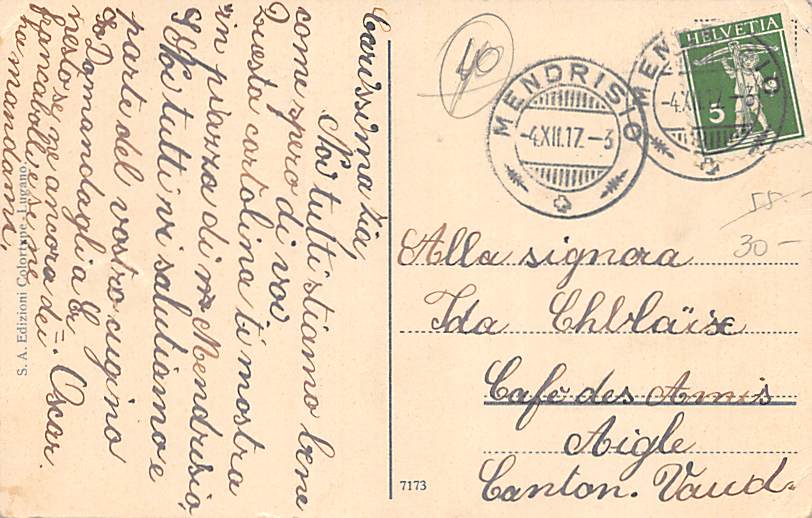 Carissima zia,
Noi tutti stiamo bene
come spero di voi
Questa cartolina ti mostra
in piazza di Mendrisio,
Noi tutti vi salutiamo e
parti del vostro cugino
Oscar.
Domandaglia
nesto se ve ancora dei
francobolli e se ne
ha mandami.
S. A. Edizioni Colortype - Lugano.
7173
40
MENDRISIO
-4.XII.17.-3
MENDRISIO
-4.XII.17.-3
HELVETIA
5
55.
30-
Alla signora
Ida Chblaïse
Café des Amis
Aigle
Canton. Vaud.